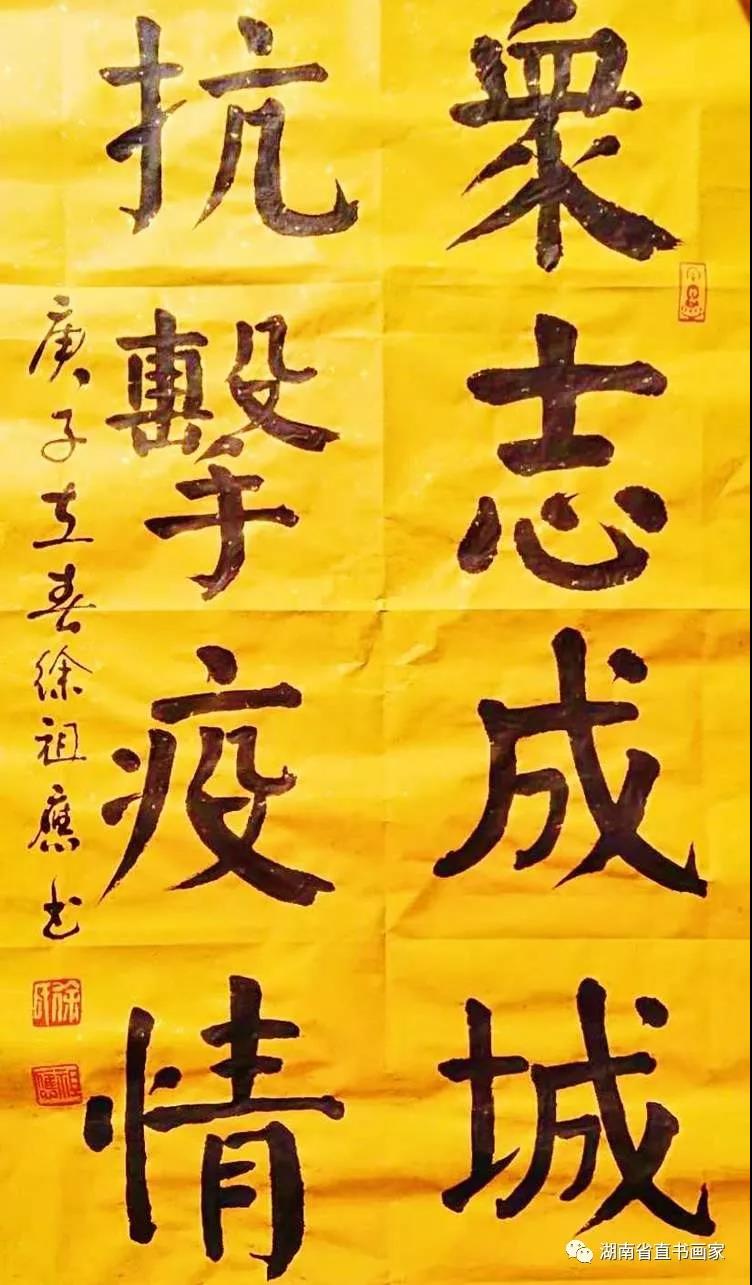 眾志成城
抗擊疫情
庚子立春徐祖應书
徐氏
祖應
湖南省直书画家